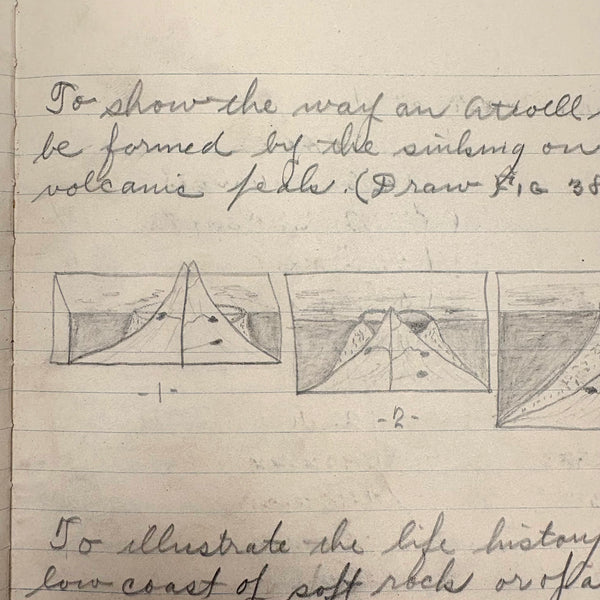 To show the way an atoell
be formed by the sinking on
volcanic peak. (Draw FIG 38
-1-
-2-
To illustrate the life history
low coast of soft rock or of a